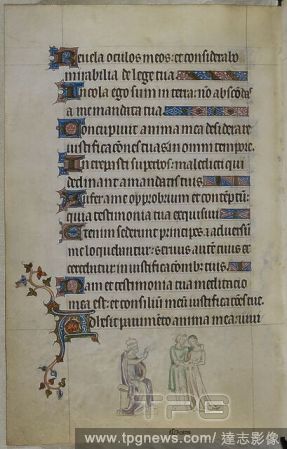 Reuela oculos meos: et considerabo
mirabilia de lege tua
Incola ego sum in terra: nō abscōdas
a me mandata tua
Concupiuit anima mea desiderare
iustificacōnes tuas in omni tempore.
Increpasti superbos: maledicti qui
declinant a mandatis tuis
Aufer a me opprobrium et contēptū:
quia testimonia tua exquisiui
Etenim sederunt principes: et aduersū
me loquebantur: seruus autē tuus ex
ercebatur in iustificacōnib; tuis
Nam et testimonia tua meditacio
mea est: et consilium meū iustificacōes tue.
Adhesit pauimēto anima mea: uiui
TPG
www.tpgnews.com/達志影像